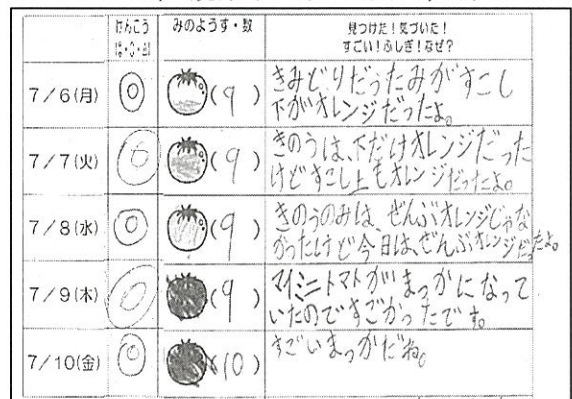 けんこう
◎・○・△
みのようす・数
見つけた!気づいた!
すごい!ふしぎ!なぜ?
7/6(月) ◎ (9) きみどりだったみがすこし
下がオレンジだったよ。
7/7(火) ◎ (9) きのうは、下だけオレンジだった
けどすこし上もオレンジだったよ。
7/8(水) ◎ (9) きのうのみは、ぜんぶオレンジじゃな
かったけど今日は、ぜんぶオレンジだったよ。
7/9(木) ◎ (9) マイミニトマトがまっかになって
いたのですごかったです。
7/10(金) ◎ (10) すごいまっかだね。